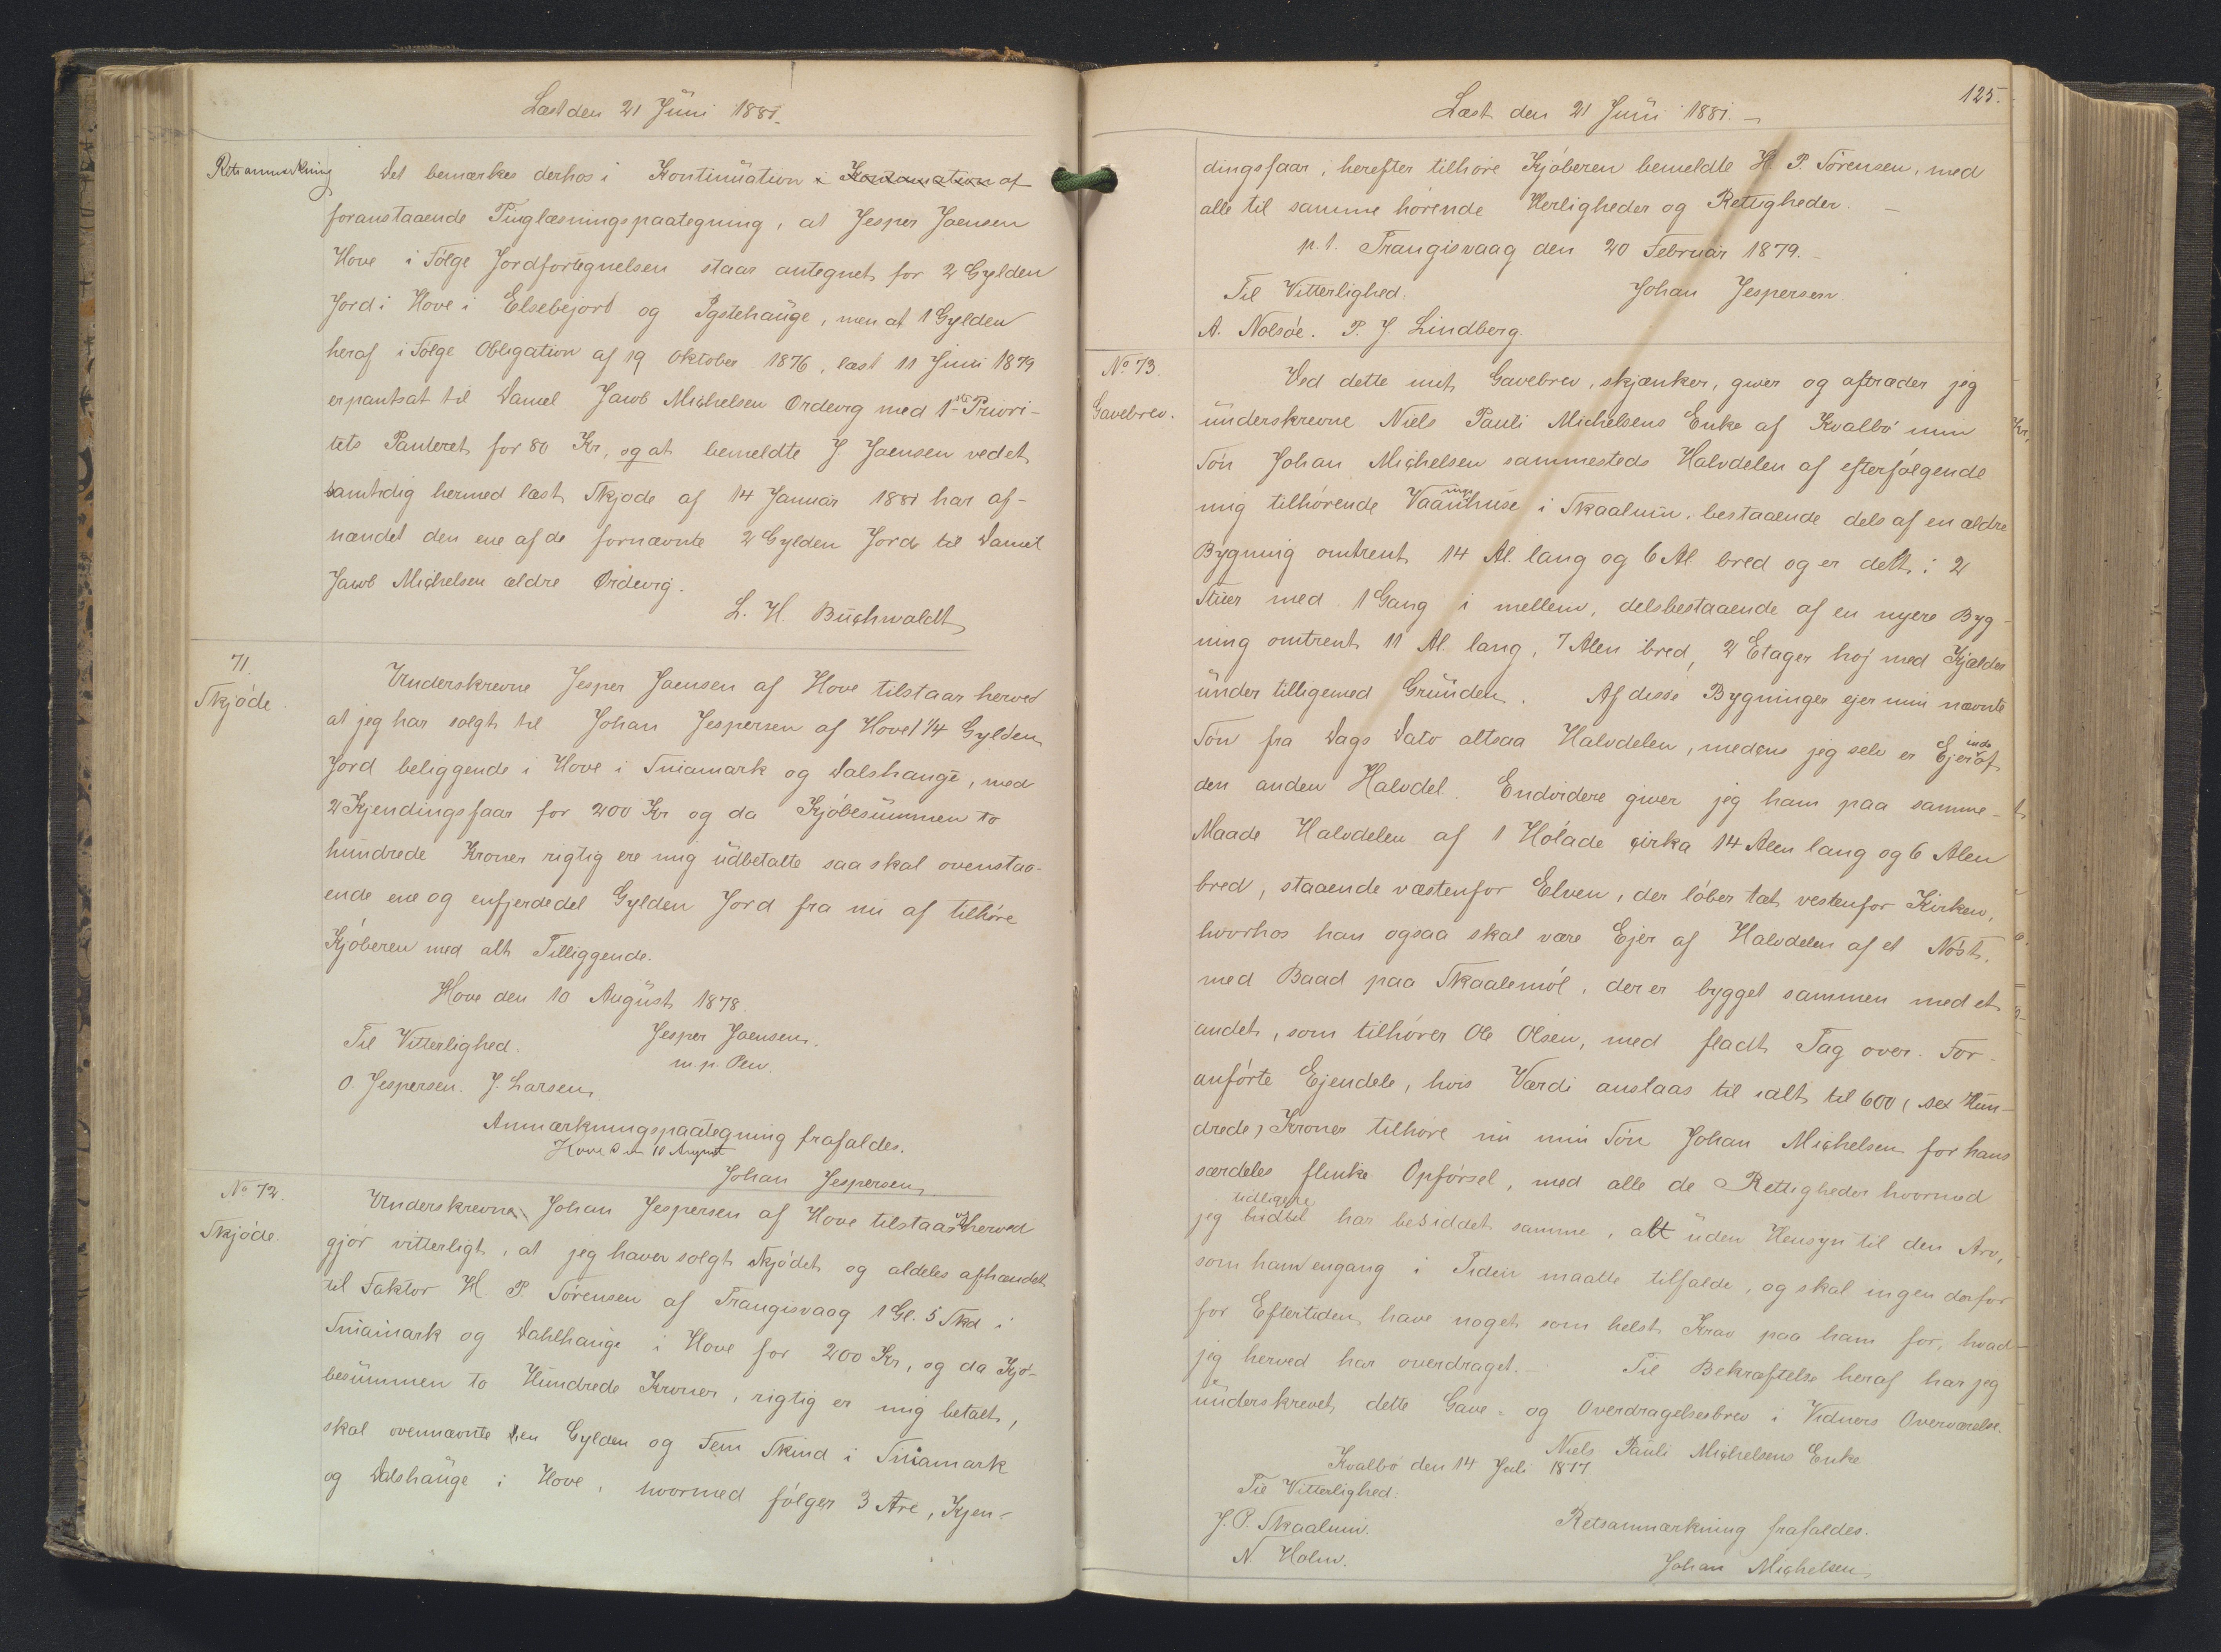 Læst den 21 Juni 1881.
Retsanmærkning Det bemærkes derhos i Kontinuation i Kontanuation af
foranstaaende Tinglæsningspaategning, at Jesper Joensen
Hove i Følge Jordfortegnelsen staar antegnet for 2 Gylden
Jord i Hove i Elsebejord og Ygstehauge, men at 1 Gylden
heraf i Følge Obligation af 19 Oktober 1876, læst 11 Juni 1879
er pantsat til Daniel Jacob Michelsen Ørdevig med 1ste Priori-
tets Panteret for 80 Kr, og at bemeldte J. Joensen ved et
samtidig hermed læst Skjøde af 14 Januar 1881 har af-
hændet den ene af de fornævnte 2 Gylden Jord til Daniel
Jacob Michelsen ældre Ørdevig.
L. H. Buchwaldt
71.
Skjøde.
Underskrevne Jesper Joensen af Hove tilstaar herved
at jeg har solgt til Johan Jespersen af Hove 1 1/4 Gylden
Jord beliggende i Hove i Tniamark og Dalshauge, med
2 Kjendingsfaar for 200 Kr og da Kjøbesummen to
hundrede Kroner rigtig ere mig udbetalte saa skal ovenstaa-
ende ene og enfjerdedel Gylden Jord fra nu af tilhøre
Kjøberen med alt Tilliggende.
Hove den 10 August 1878.
Til Vitterlighed. Jesper Joensen.
m. p. Pen.
O. Jespersen. J. Larsen.
Anmærkningspaategning frafaldes.
Hove den 10 August
Johan Jespersen.
No 72.
Skjøde.
Underskrevne Johan Jespersen af Hove tilstaar og herved
gjør vitterligt, at jeg haver solgt skjødet og aldeles afhændet
til Faktor H. P. Sørensen af Trangisvaag 1 Gl. 5 Skd i
Tniamark og Dahlhauge i Hove for 200 Kr, og da Kjø-
besummen to Hundrede Kroner, rigtig er mig betalt,
skal ovennævnte een Gylden og Fem Skind i Tniamark
og Dalshauge i Hove, hvormed følger 3 Are, Kjen-
125.
Læst den 21 Juni 1881.
dingsfaar, herefter tilhøre Kjøberen bemeldte H. P. Sørensen, med
alle til samme hørende Herligheder og Rettigheder.
p. t. Trangisvaag den 20 Februar 1879.
Til Vitterlighed. Johan Jespersen.
A. Nolsøe. P. J. Lindberg.
No 73.
Gavebrev.
Ved dette mit Gavebrev, skjænker, giver og aftræder jeg
underskrevne Niels Pauli Michelsens Enke af Kvalbø min
Søn Johan Michelsen sammesteds Halvdelen af efterfølgende
mig tilhørende Vaaningshuse i Skaalum, bestaaende dels af en ældre
Bygning omtrent 14 Al. lang og 6 Al bred og er delt i 2
Stuer med 1 Gang i mellem, dels bestaaende af en nyere Byg-
ning omtrent 11 Al. lang, 7 Alen bred, 2 Etager høj med Kjælder
under tilligemed Grunden. Af disse Bygninger ejer min nævnte
Søn fra Dags Dato altsaa Halvdelen, medens jeg selv er Ejerinde af
den anden Halvdel. Endvidere giver jeg ham paa samme
Maade Halvdelen af 1 Hólade cirka 14 Alen lang og 6 Alen
bred, staaende væstenfor Elven, der løber tæt vestenfor Kirken,
hvorhos han ogsaa skal være Ejer af Halvdelen af et Nøst,
med Baad paa Skaalemøl, der er bygget sammen med et
andet, som tilhører Ole Olsen, med fladt Tag over. For-
anførte Ejendele, hvis Værdi anslaas til ialt til 600 (sex Hun-
drede) Kroner tilhøre nu min Søn Johan Michelsen for hans
særdeles flinke Opførsel, med alle de Rettigheder hvormed
jeg hidtil tidligere har besiddet samme, alt uden Hensyn til den Arv,
som ham engang i Tiden maatte tilfalde, og skal ingen derfor
for Eftertiden have noget som helst Krav paa ham for, hvad
jeg herved har overdraget. Til Bekræftelse heraf har jeg
underskrevet dette Gave- og Overdragelsesbrev i Vidners Overværelse.
Niels Pauli Michelsens Enke
Kvalbø den 14 Juli 1877.
Til Vitterlighed.
J. P. Skaalum. Retsanmærkning frafaldes.
N Holm. Johan Michelsen